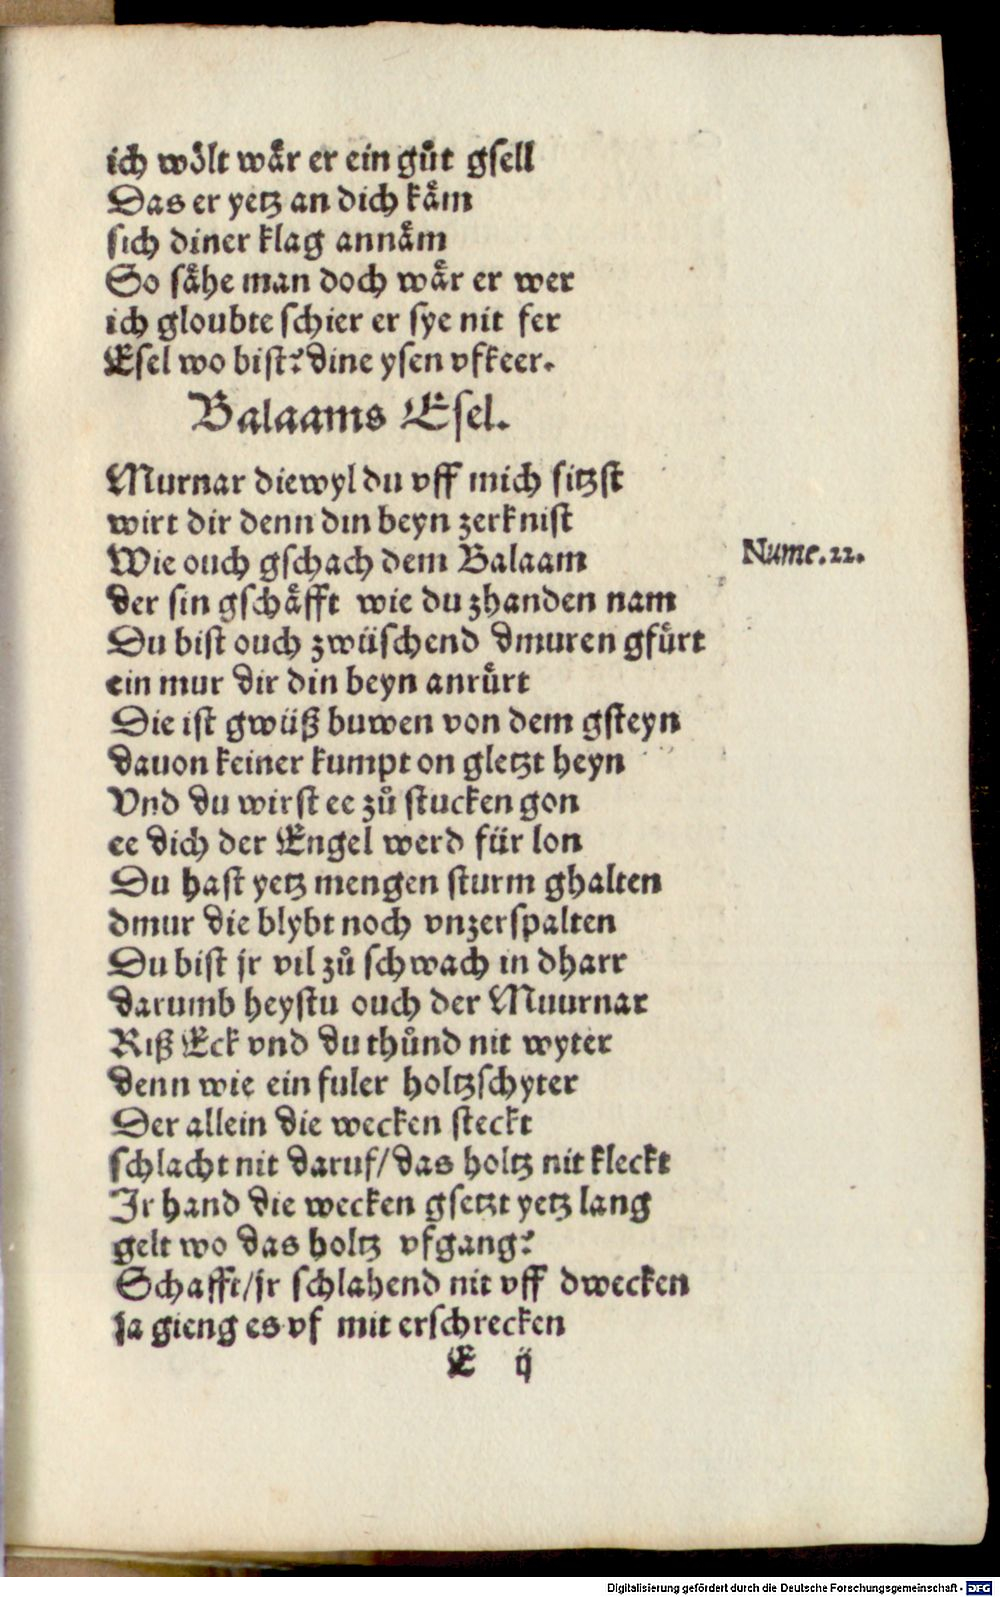 ich woͤlt waͤr er ein guͦt gsell
Das er yetz an dich kaͤm
sich diner klag annaͤm
So saͤhe man doch waͤr er wer
ich gloubte schier er sye nit fer
Esel wo bist? dine ysen vfkeer.
Balaams Esel.
Murnar diewyl du vff mich sitzst
wirt dir denn din beyn zerknist
Wie ouch gschach dem Balaam
Nume.22.
der sin gschaͤfft wie du zhanden nam
Du bist ouch zwüschend dmuren gfuͤrt
ein mur dir din beyn anruͤrt
Die ist gwüß buwen von dem gsteyn
dauon keiner kumpt on gletzt heyn
Vnd du wirst ee zuͦ stucken gon
ee dich der Engel werd für lon
Du hast yetz mengen sturm ghalten
dmur die blybt noch vnzerspalten
Du bist jr vil zuͦ schwach in dharr
darumb heystu ouch der Muurnar
Riß Eck vnd du thuͦnd nit wyter
denn wie ein fuler holtzschyter
Der allein die wecken steckt
schlacht nit daruf/das holtz nit kleckt
Jr hand die wecken gsetzt yetz lang
gelt wo das holtz vfgang?
Schafft/jr schlahend nit vff dwecken
ja gieng es vf mit erschrecken
E ij
Digitalisierung gefördert durch die Deutsche Forschungsgemeinschaft - DFG